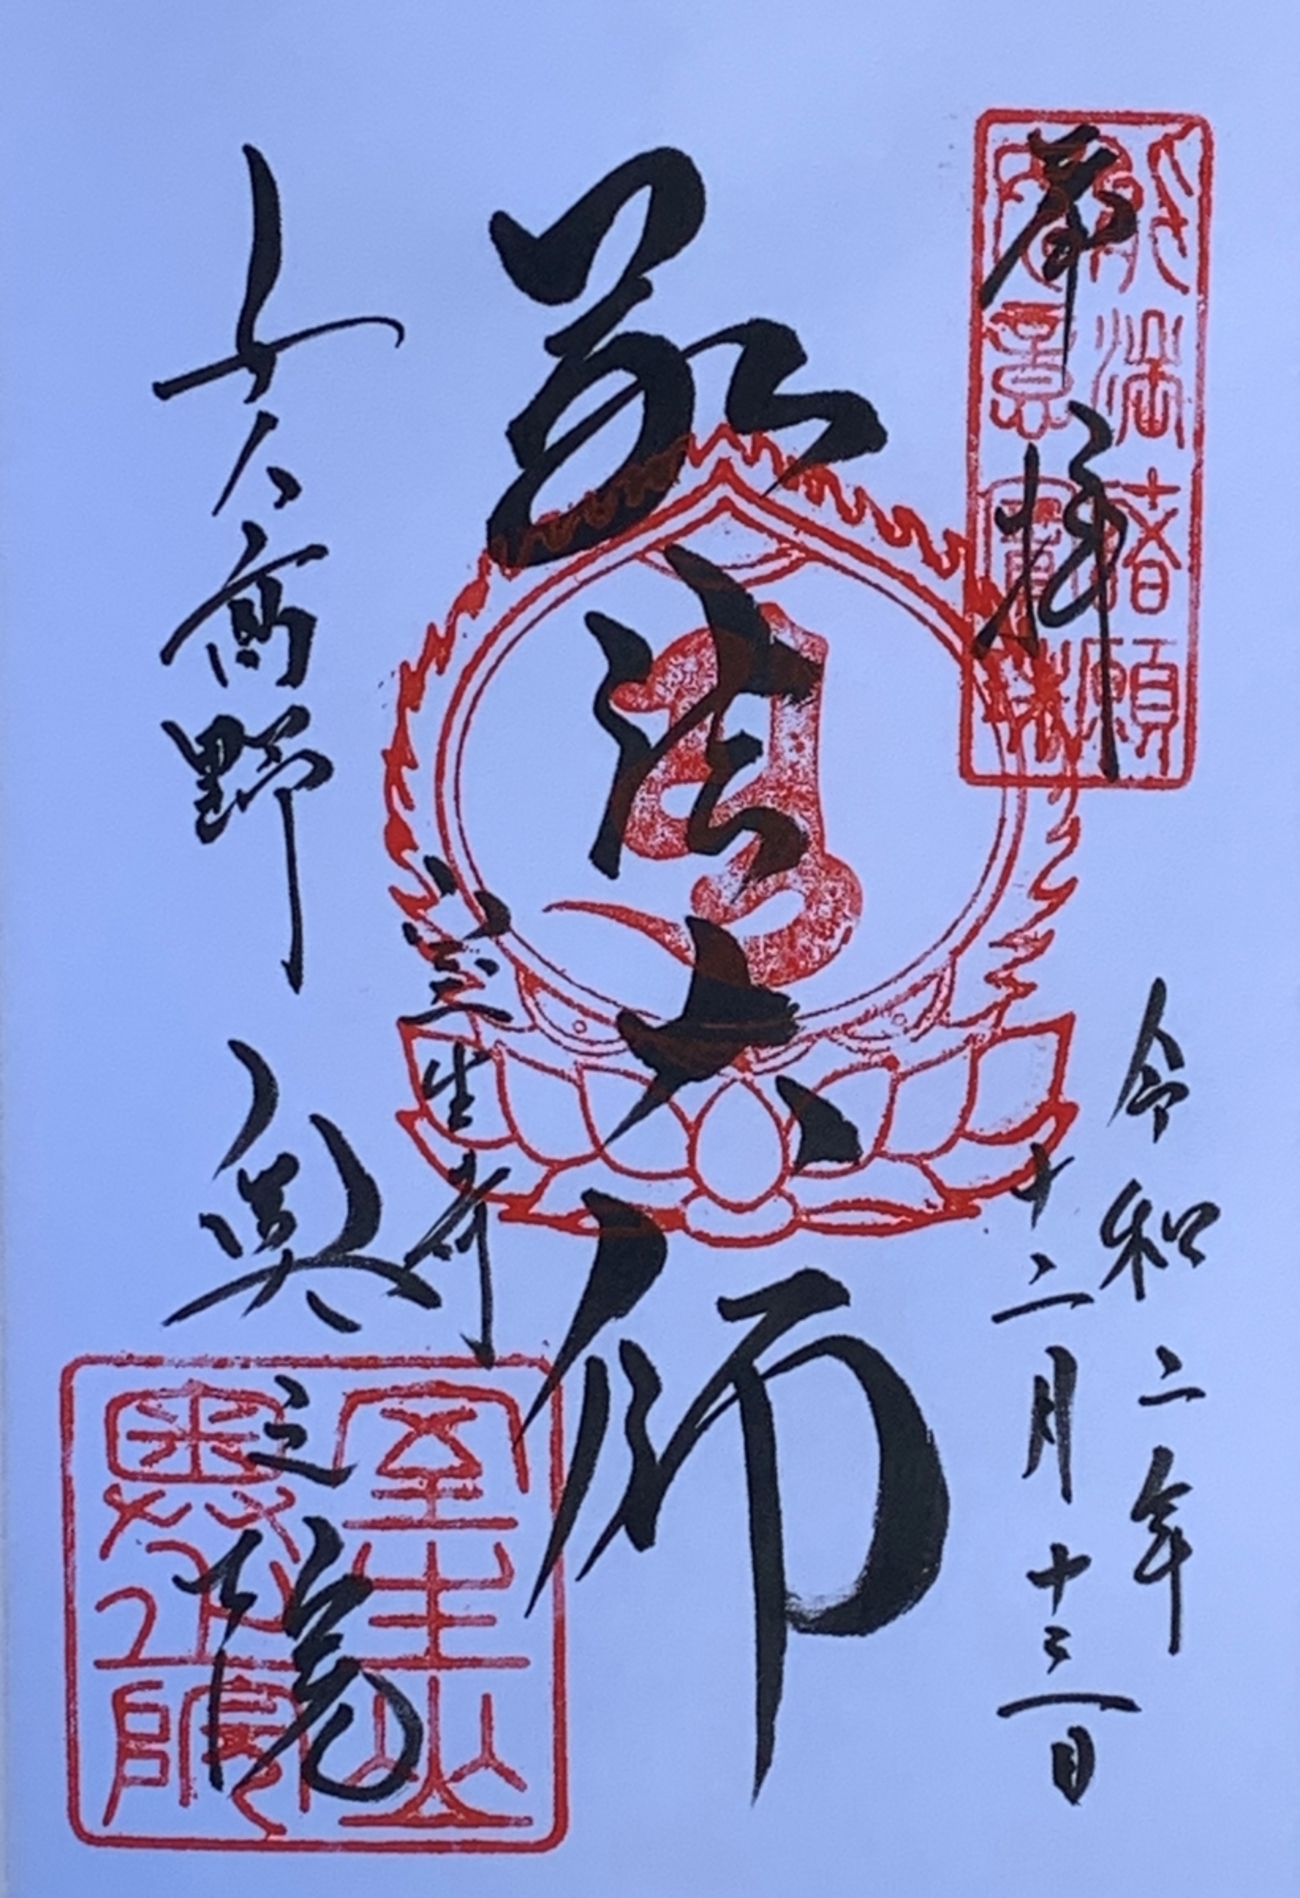 能満諸願
如意寶珠
奉拝
令和二年
十二月十三日
弘法大師
室生寺
女人高野 奥之院
室生山
奥之院